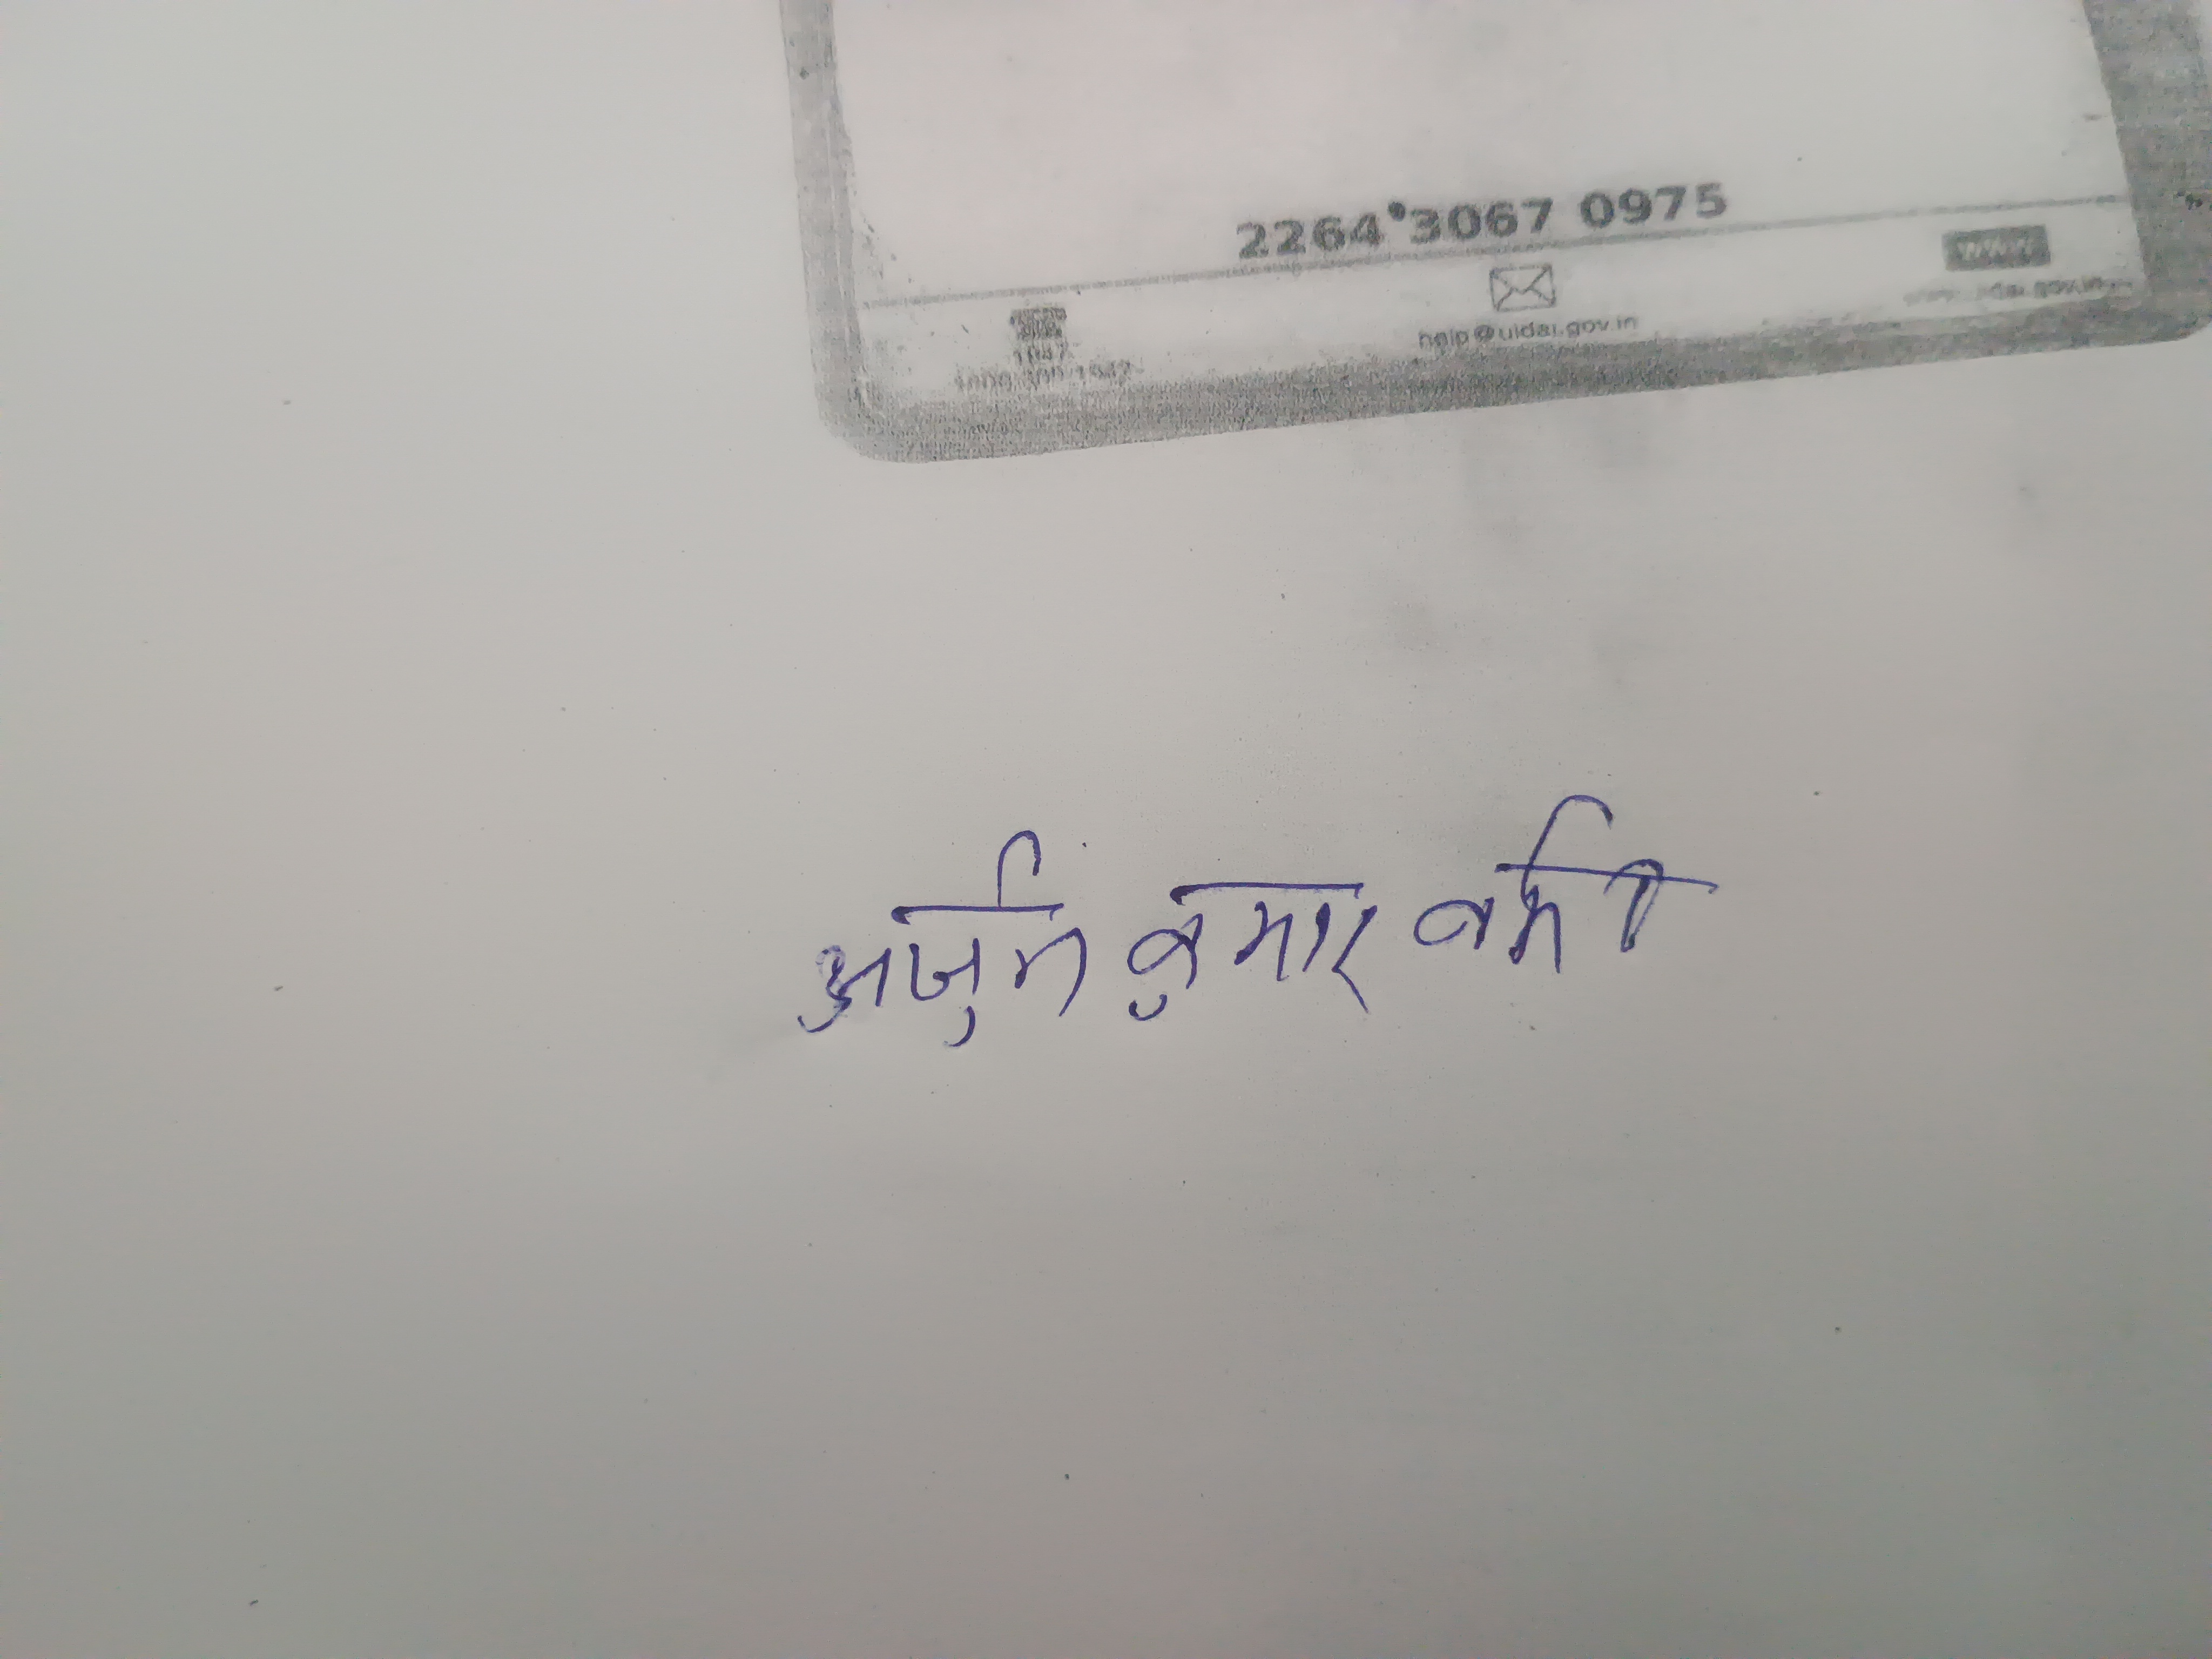 2264 3067 0975
1947
1800 300 1947
help@uidai.gov.in
www
www.uidai.gov.in
अर्जुन कुमार वर्मा